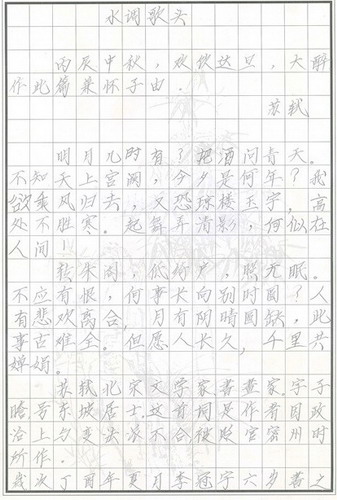 水调歌头
丙辰中秋，欢饮达旦，大醉
作此篇兼怀子由．
苏轼
明月几时有？把酒问青天。
不知天上宫阙，今夕是何年？我
欲乘风归去，又恐琼楼玉宇，高
处不胜寒。起舞弄清影，何似在
人间！
转朱阁，低绮户，照无眠。
不应有恨，何事长向别时圆？人
有悲欢离合，月有阴晴圆缺，此
事古难全。但愿人长久，千里共
婵娟。
苏轼北宋文学家书画家。字子
瞻号东坡居士。这首词是作者因政
治上 变 不合被贬官密州时
所作。
岁次丁酉年 月李冠宇六岁书之